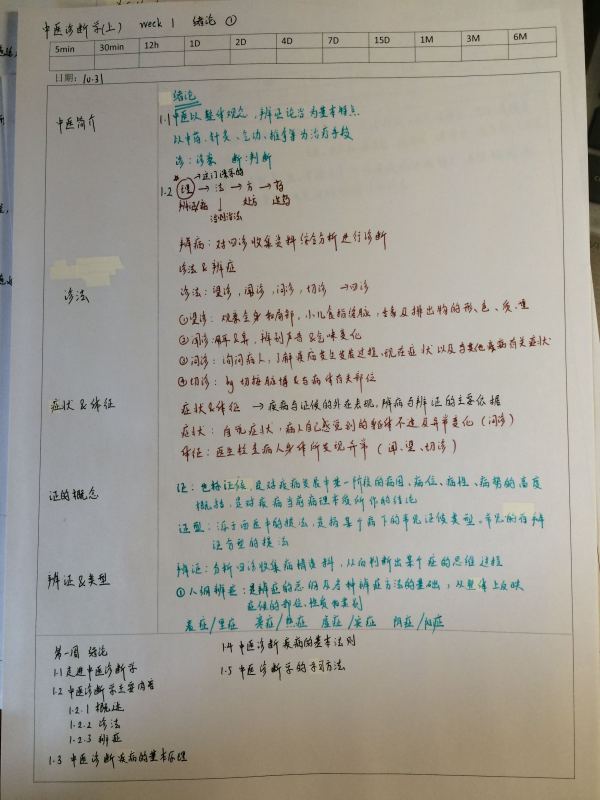 中医诊断学(上) week 1 绪论 ①
5min 30min 12h 1D 2D 4D 7D 15D 1M 3M 6M
日期: 10.31
绪论
中医简介
1.1 中医以整体观念,辨证论治为基本特点
以中药、针灸、气功、推拿等为治疗手段
诊:诊察 断:判断
→这门课学的
1.2 理 → 法 → 方 → 药
辨证/病 ↓ 处方 选药
治则治法
辨病:对四诊收集资料综合分析进行诊断
诊法&辨症
诊法
诊法:望诊,闻诊,问诊,切诊 →四诊
①望诊:观察全身和局部,小儿食指络脉,舌象及排出物的形、色、质、量
②闻诊:耳&鼻,辨别声音&气味变化
③问诊:询问病人,了解疾病发生发展过程、现在症状以及与其他疾病有关症状
④切诊:by 切按脉博&与病体有关部位
症状&体征
症状&体征 → 疾病与证候的外在表现,辨病与辨证的主要依据
症状:自觉症状,病人自己感觉到的躯体不适及异常变化(问诊)
体征:医生检查病人身体所发现异常(闻、望、切诊)
证的概念
证:包括证候,是对疾病发展中某一阶段的病因、病位、病性、病势的高度
概括,是对疾病当前病理本质所作的结论
证型:源于西医中的提法,是指某个病下的常见证候类型。常见的有辨
证分型的提法
辨证&类型
辨证:分析四诊收集病情资料,从而判断出某个症的思维过程
①八纲辨症:是辨症的总纲及各种辨症方法的基础,从整体上反映
症候的部位、性质和类别
表症/里症 寒症/热症 虚症/实症 阴症/阳症
第一周 绪论
1.1 走进中医诊断学
1.2 中医诊断学主要内容
1.2.1 概述
1.2.2 诊法
1.2.3 辨症
1.3 中医诊断疾病的基本原理
1.4 中医诊断疾病的基本法则
1.5 中医诊断学的学习方法